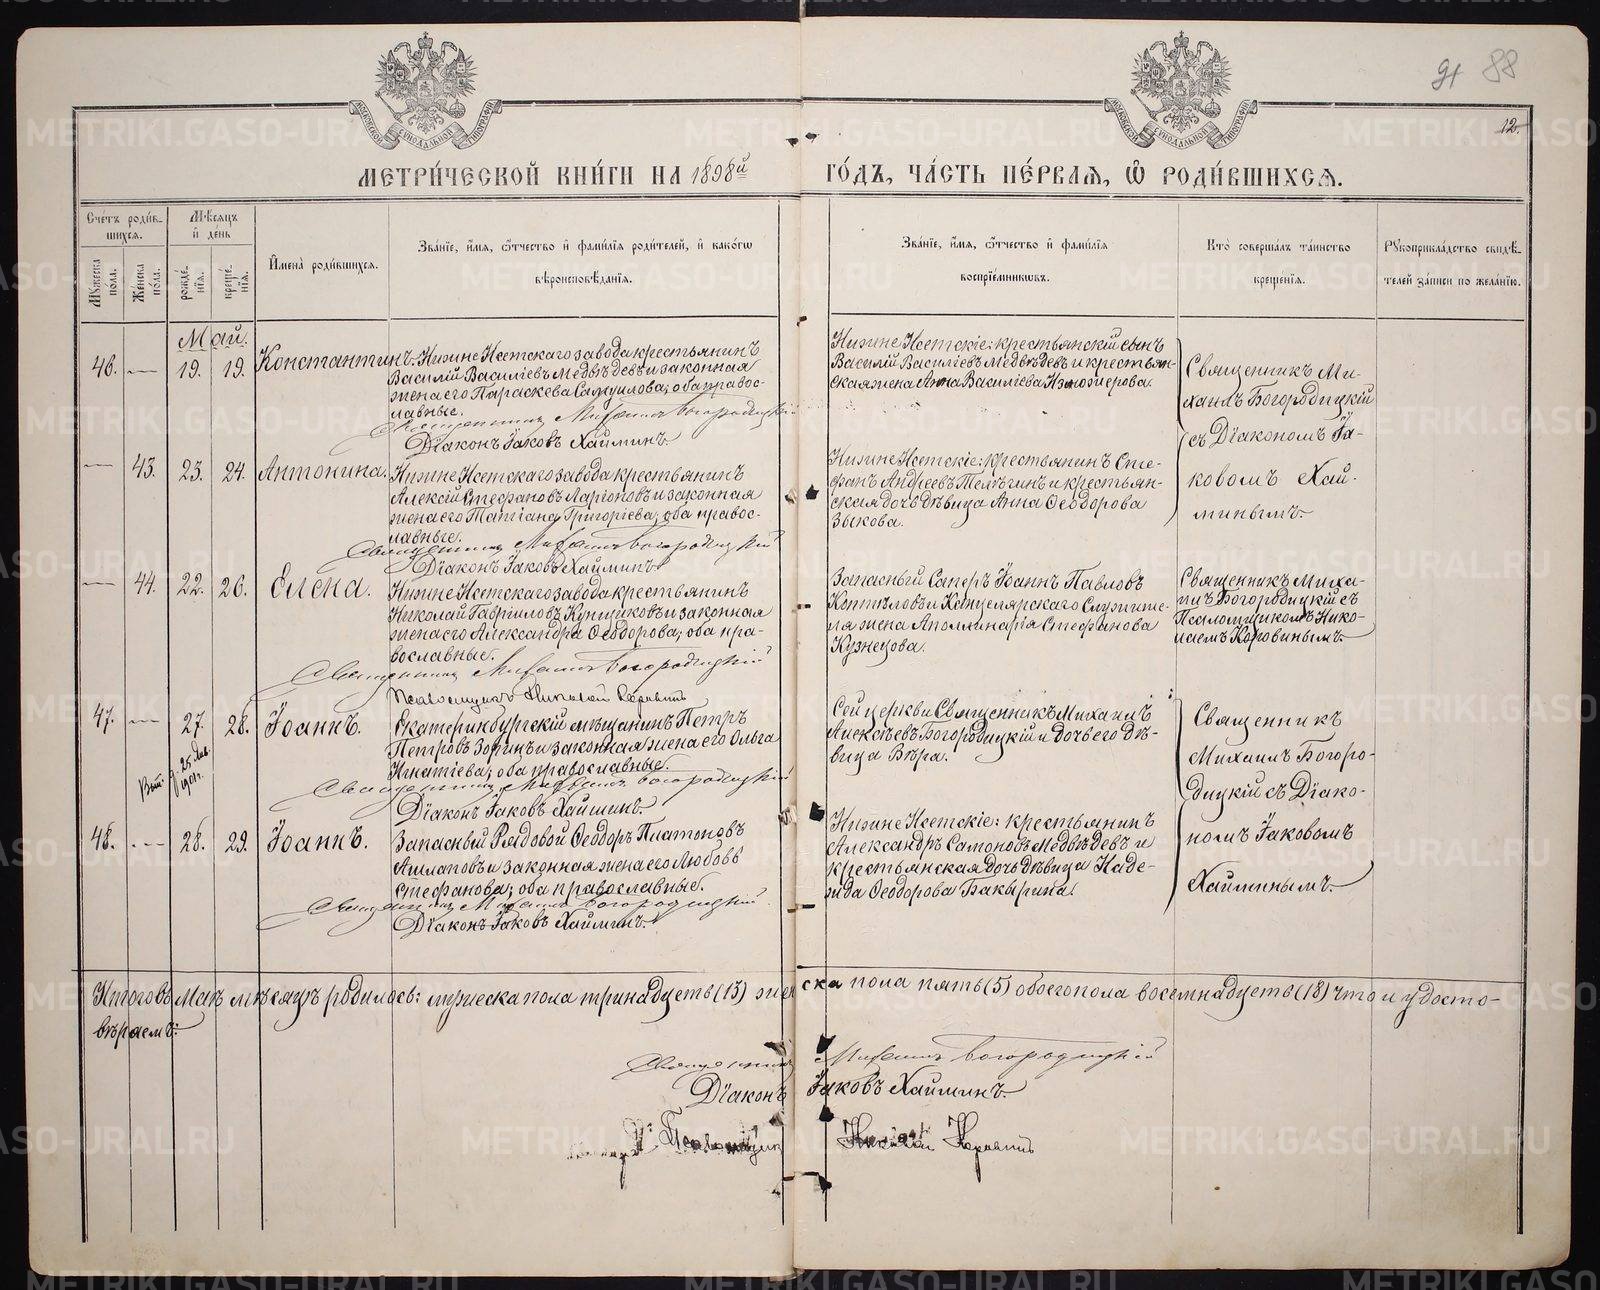 91 88
12.
МЕТРИ́ЧЕСКОЙ КНИ́ГИ НА 1898й ГО́ДЪ, ЧА́СТЬ ПЕ́РВАѦ, Ѽ РОДИ́ВШИХСѦ.
Сче́тъ роди́в-
шихсѧ.
Мꙋ́жеска по́ла.
Же́нска по́ла.
Мѣ́сѧцъ и҆ де́нь
рожде́нїѧ.
креще́нїѧ.
И҆мена̀ роди́вшихсѧ.
Зва́нїе, и҆́мѧ, ѻ҆́тчество и҆ фамі́лїѧ роди́телей, и҆ како́гѡ
вѣроисповѣ́данїѧ.
Зва́нїе, и҆́мѧ, ѻ҆́тчество и҆ фамі́лїѧ
воспрїе́мникѡвъ.
Кто̀ соверша́лъ та́инство
креще́нїѧ.
Рꙋкоприкла́дство свидѣ́-
телей за́писи по жела́нїю.
Май.
46. — 19. 19. Константинъ.
Нижне Исетскаго завода крестьянинъ
Василій Василіевъ Медвѣдевъ и законная
жена его Параскева Самуилова; оба право-
славные.
Священникъ Михаилъ Богородицкій
Діаконъ Іаковъ Хайминъ.
Нижне Исетскіе: крестьянскій сынъ
Василій Василіевъ Медвѣдевъ и крестьян-
ская жена Анна Василіева
Священникъ Ми-
хаилъ Богородицкій
съ Діакономъ Іа-
ковомъ Хай-
минымъ.
— 43. 23. 24. Антонина.
Нижне Исетскаго завода крестьянинъ
Алексій Стефановъ Ларіоновъ и законная
жена его Татіана Григоріева; оба право-
славные.
Священникъ Михаилъ Богородицкій
Діаконъ Іаковъ Хайминъ
Нижне Исетскіе: крестьянинъ Сте-
фанъ Андреевъ Телѣгинъ и крестьян-
ская дочь дѣвица Анна Ѳеодорова
Зыкова.
— 44. 22. 26. Елена.
Нижне Исетскаго завода крестьянинъ
Николай Гавріиловъ Кунщиковъ и законная
жена его Александра Ѳеодорова; оба пра-
вославные.
Священникъ Михаилъ Богородицкій
Псаломщикъ Николай Коровинъ
Запасный Саперъ Іоаннъ Павловъ
Коптѣловъ и Канцелярскаго Служите-
ля жена Аполлинарія Стефанова
Кузнецова.
Священникъ Миха-
илъ Богородицкій съ
Псаломщикомъ Нико-
лаемъ Коровинымъ.
47. — 27. 28. Іоаннъ.
Выд. 25. Янв. 1901г.
Екатеринбургскій мѣщанинъ Петръ
Петровъ Зоринъ и законная жена его Ольга
Игнатіева; оба православные.
Священникъ Михаилъ Богородицкій
Діаконъ Іаковъ Хайминъ.
Сей церкви Священникъ Михаилъ
Алексѣевъ Богородицкій и дочь его дѣ-
вица Вѣра.
Священникъ
Михаилъ Богоро-
дицкій съ Діако-
номъ Іаковомъ
Хайминымъ.
48. — 28. 29. Іоаннъ.
Запасный Рядовой Ѳеодоръ Платоновъ
Ашлаповъ и законная жена его Любовь
Стефанова; оба православные.
Священникъ Михаилъ Богородицкій
Діаконъ Іаковъ Хайминъ.
Нижне Исетскіе: крестьянинъ
Александръ Самоновъ Медвѣдевъ и
крестьянская дочь дѣвица Наде-
жда Ѳеодорова Бакырина.
Итого въ Маѣ мѣсяцѣ родилось: мужеска пола тринадцеть (13) женска пола пять (5) обоего пола восемнадцеть (18) что и удосто-
вѣряемъ:
Священникъ Михаилъ Богородицкій
Діаконъ Іаковъ Хайминъ.
Псаломщикъ Николай Коровинъ
METRIKI.GASO-URAL.RU